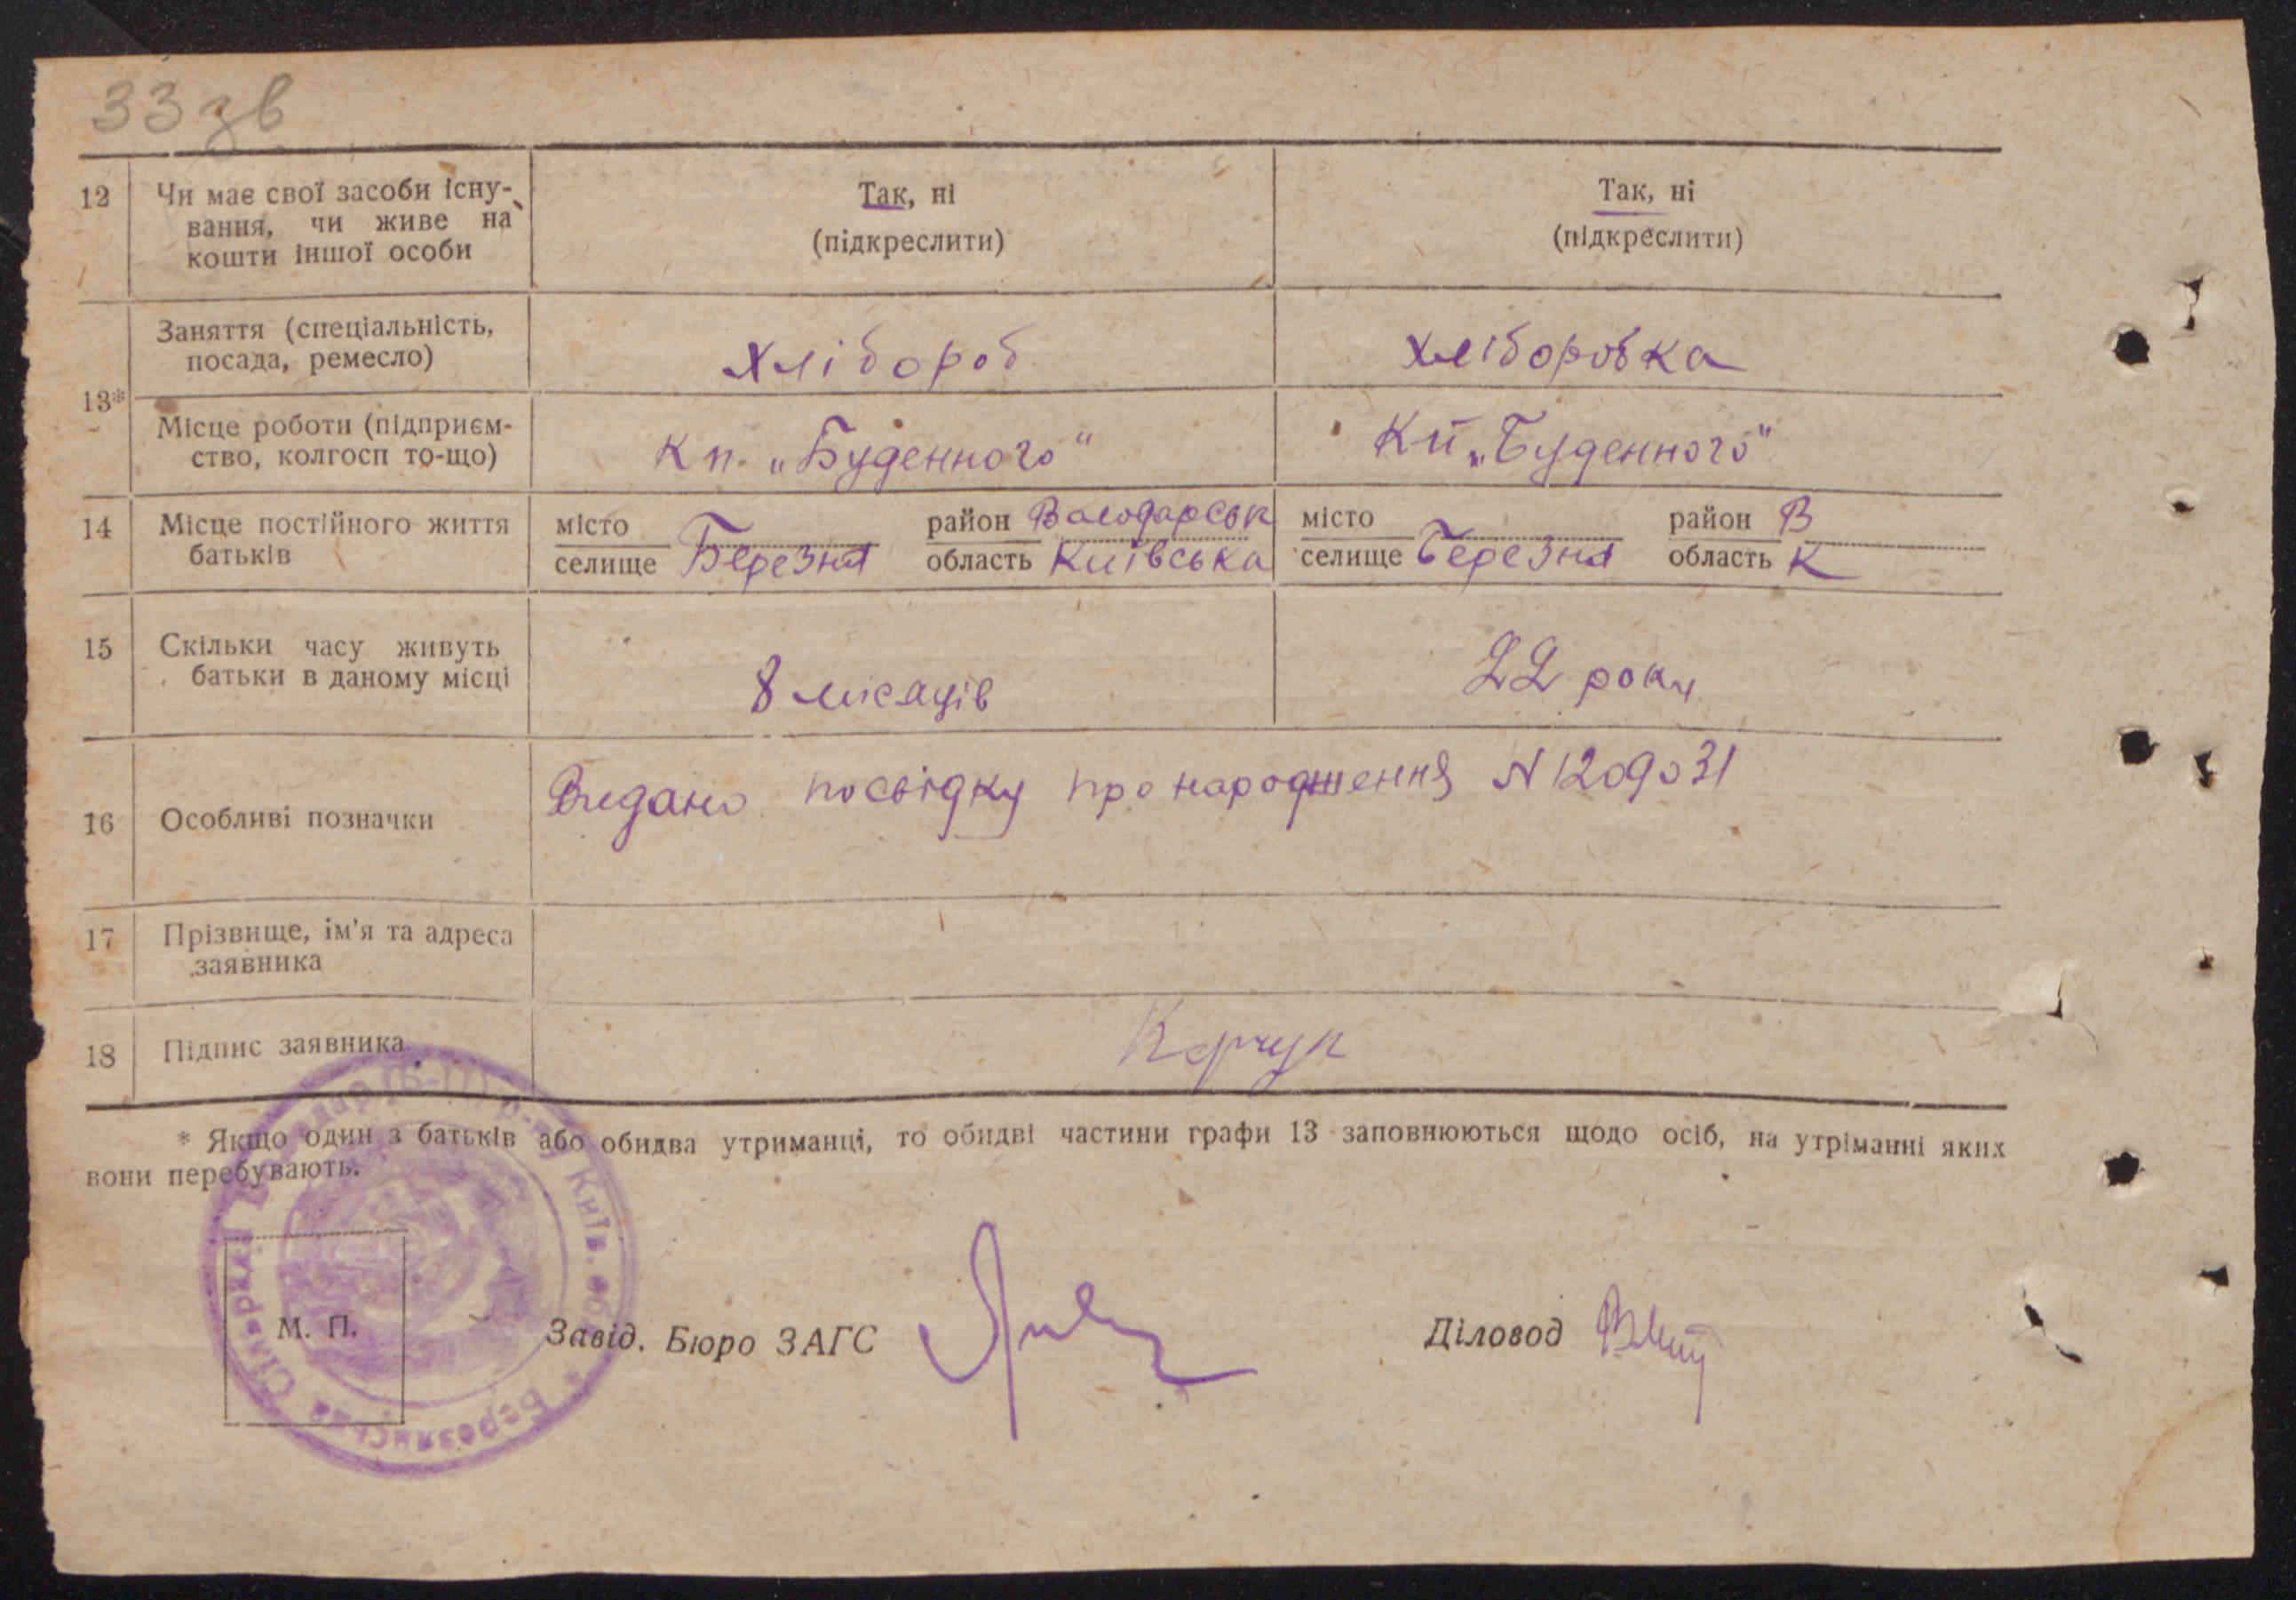 33 зв
12 Чи має свої засоби існу-
вання, чи живе на
кошти іншої особи
Так, ні
(підкреслити)
Так, ні
(підкреслити)
13*
Заняття (спеціальність,
посада, ремесло)
хлібороб
хліборобка
Місце роботи (підприєм-
ство, колгосп то-що)
Кп. „Буденного“
Кп „Буденного“
14 Місце постійного життя
батьків
місто
селище Березна
район Володарськ
область Київська
місто
селище Березна
район В
область К
15 Скільки часу живуть
батьки в даному місці
8 місяців
22 роки
16 Особливі позначки
Видано посвідку про народження N 1209031
17 Прізвище, ім'я та адреса
заявника
18 Підпис заявника
Корчук
* Якщо один з батьків або обидва утриманці, то обидві частини графи 13 заповнюються щодо осіб, на утріманні яких
вони перебувають.
М. П.
Завід. Бюро ЗАГС
Діловод
р-ну Київ. обл. * Березянська Сільрада